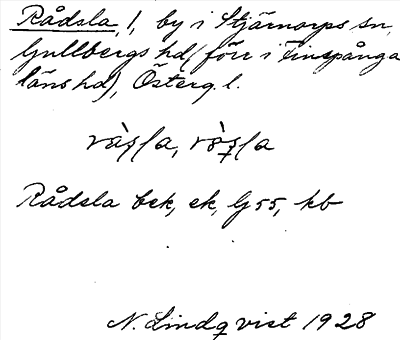 Rådsla, 1, by i Stjärnorps sn,
Gullbergs hd (förr i Finspånga
läns hd), Österg. l.
Rådsla bek, ek, G 55, kb
N. Lindqvist 1928